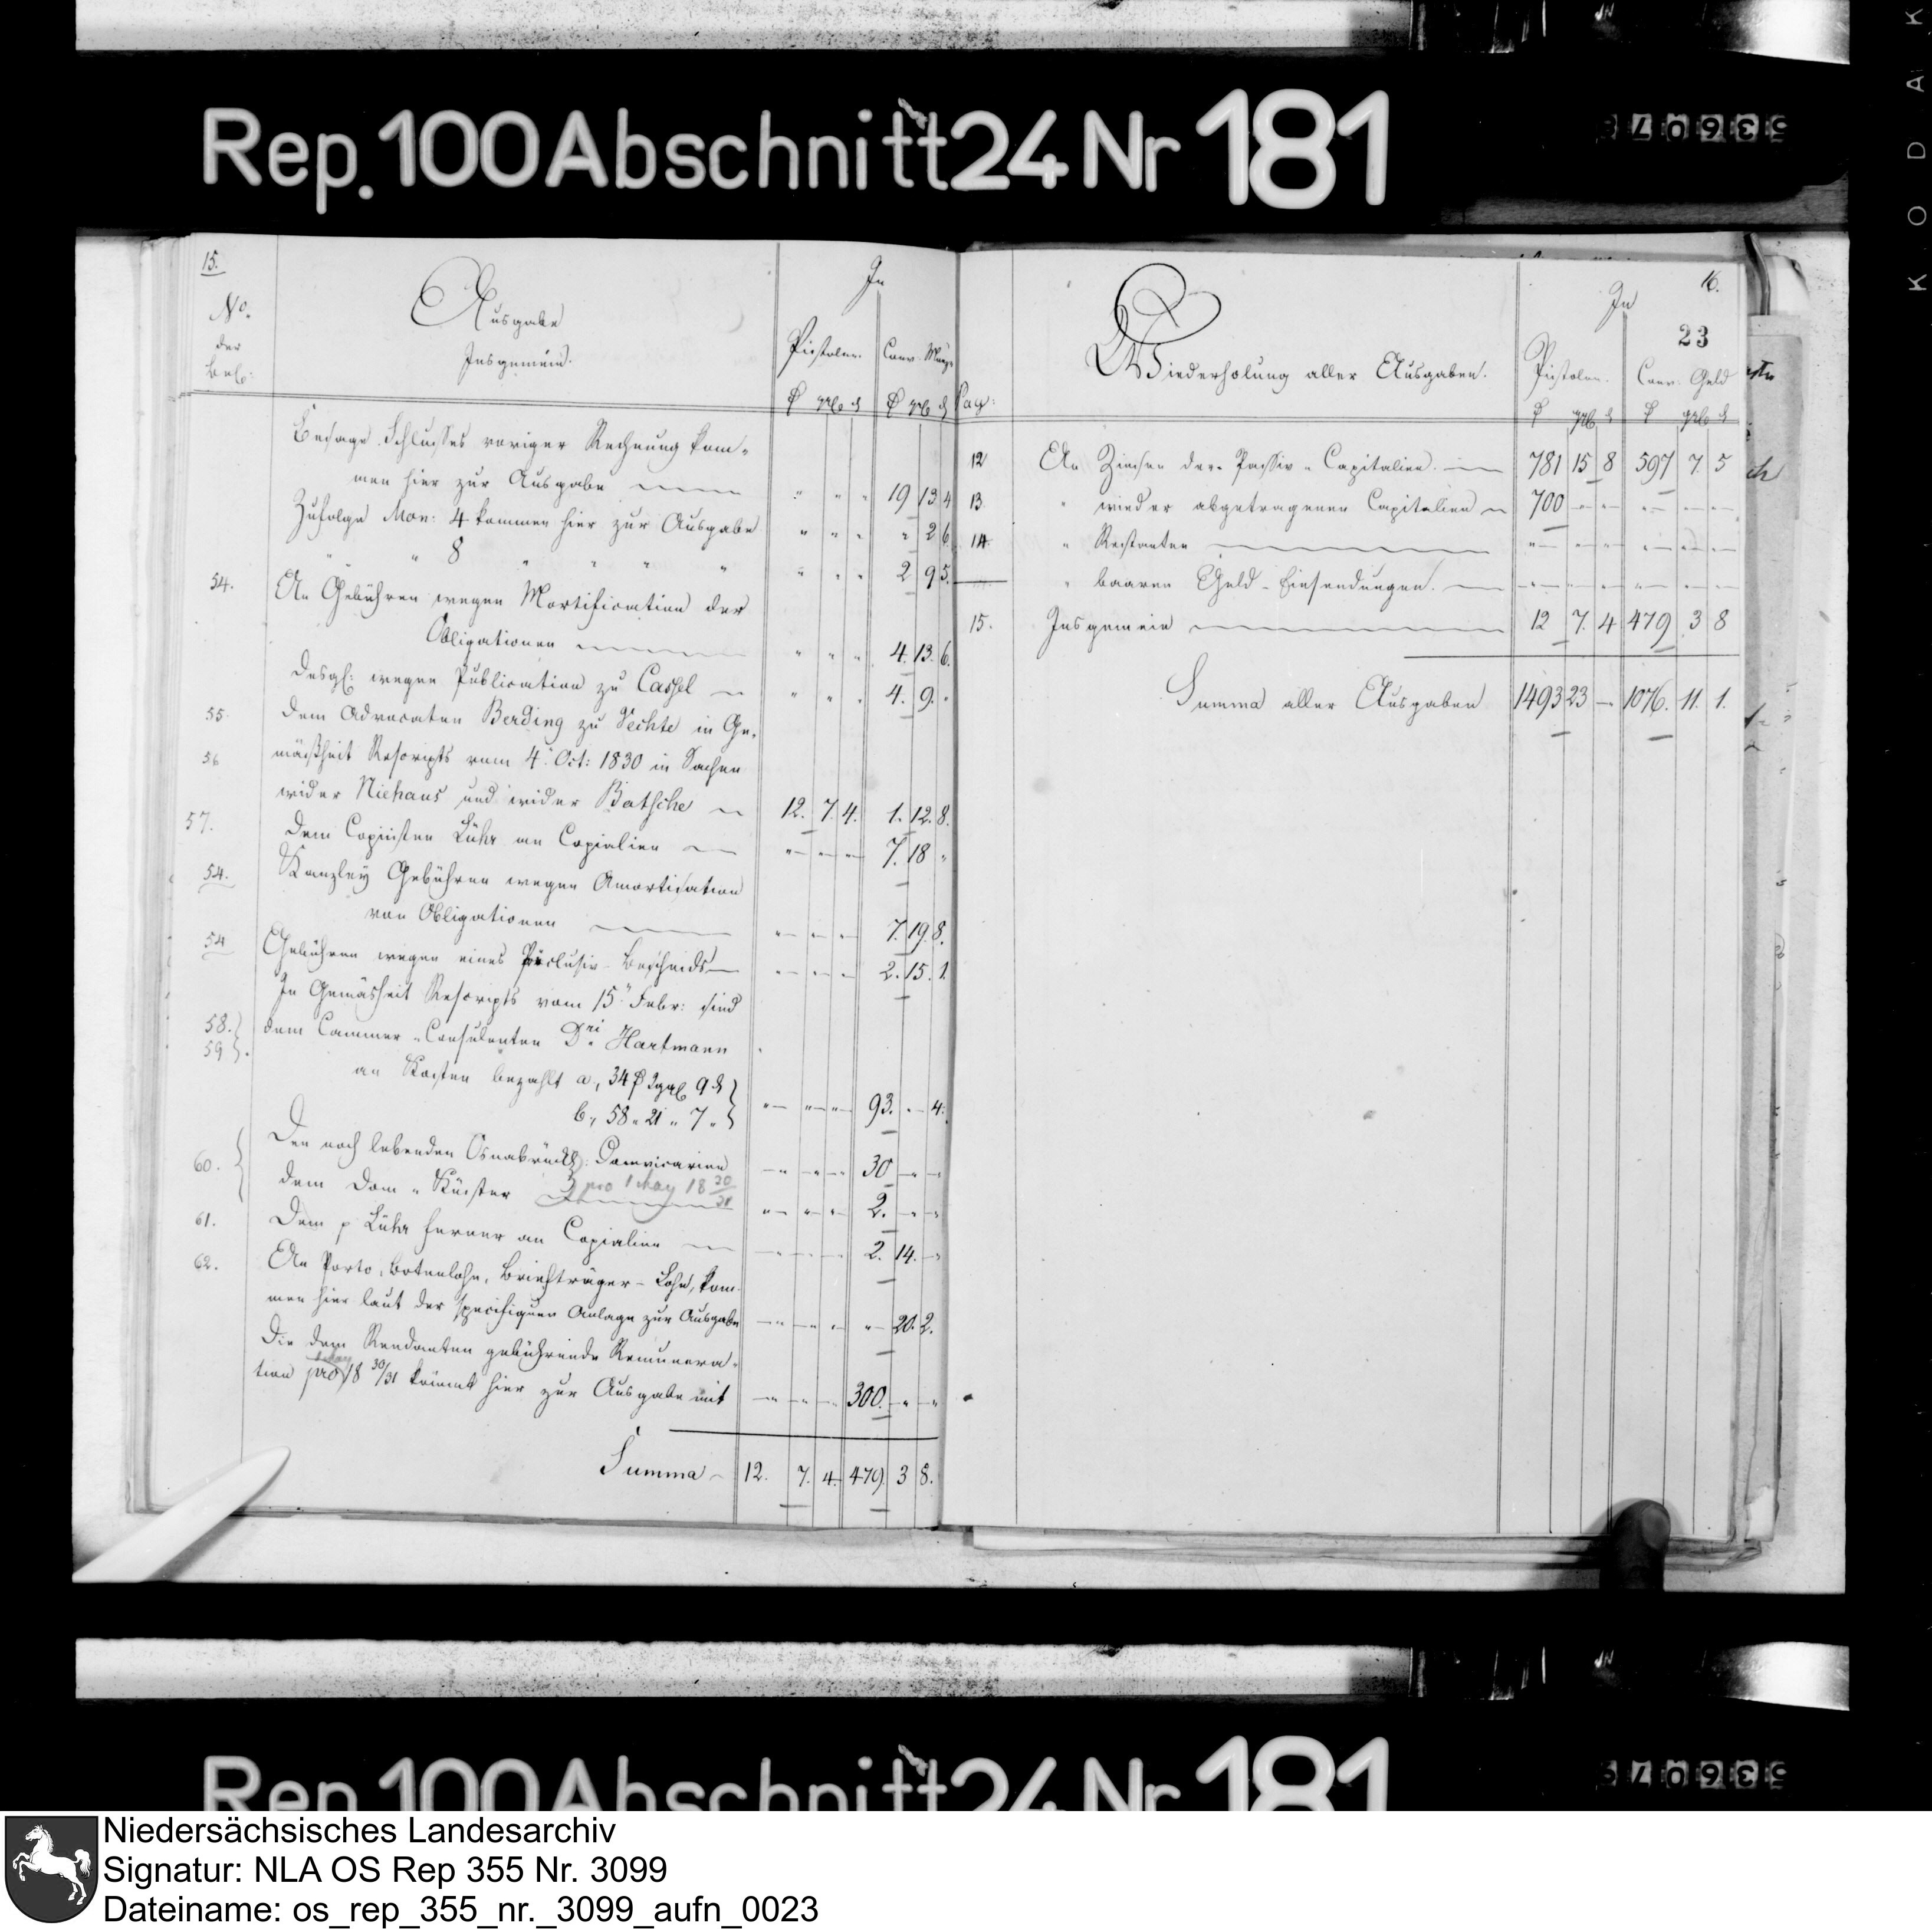 Rep. 100 Abschnitt 24 Nr 181
KODAK
15.
No.
der
Bel:
Ausgabe
Insgemein.
In
Pistolen. Conv. Münze
₰ ggl ₰ ₰ ggl ₰
Besage Schlusses voriger Rechnung kom-
men hier zur Ausgabe " " " 19 13 4
Zufolge Mon: 4 kommen hier zur Ausgabe " " " " 2 6
" " 8 " " " " " " " 2 9 5.
54. An Gebühren wegen Mortification der
Obligationen " " " 4. 13. 6.
Desgl: wegen Publication zu Cassel " " " 4. 9. "
55. Dem Advocaten Berding zu Vechte in Ge-
56 mäßheit Rescripts vom 4. Oct: 1830 in Sachen
wider Niehaus und wider Batsche 12. 7. 4. 1. 12. 8.
57. Dem Copiisten Lühr an Copialien " " " 7. 18 "
54. Kanzley Gebühren wegen Amortisation
von Obligationen " " " 7. 19. 8.
54 Gebühren wegen eines Präclusiv-Bescheids " " " 2. 15. 1.
In Gemäsheit Rescripts vom 15. Febr: sind
58. dem Cammer-Consulenten Dri Hartmann
59. an Kosten bezahlt a, 34 ₰ 2 ggl 9 ₰
b, 58 " 21 " 7 " } " " " 93. " 4.
60. Den noch lebenden Osnabrück: Domvicarien " " " 30 " "
dem Dom-Küster } pro 1 May 18 30/31 " " " 2. " "
61. Dem p Lühr ferner an Copialien " " " 2. 14. "
62. An Porto, Botenlohn, Briefträger-Lohn, kom-
men hier laut der specifiquen Anlage zur Ausgabe " " " " 20. 2.
Die dem Rendanten gebührende Remunera-
tion pro 1 May 18 30/31 kömmt hier zur Ausgabe mit " " " 300. " "
Summa 12. 7. 4. 479. 3 8.
16.
23
Pag:
Wiederholung aller Ausgaben.
In
Pistolen. Conv: Geld
₰ ggl ₰ ₰ ggl ₰
12 An Zinsen der Passiv-Capitalien. 781 15 8 597 7. 5
13. " wieder abgetragenen Capitalien 700 " " " " "
14. " Restanten " " " " " "
" baaren Geld-Einsendungen. " " " " " "
15. Insgemein 12 7. 4 479 3 8
Summa aller Ausgaben 1493 23 " 1076. 11. 1.
Rep. 100 Abschnitt 24 Nr 181
Niedersächsisches Landesarchiv
Signatur: NLA OS Rep 355 Nr. 3099
Dateiname: os_rep_355_nr._3099_aufn_0023